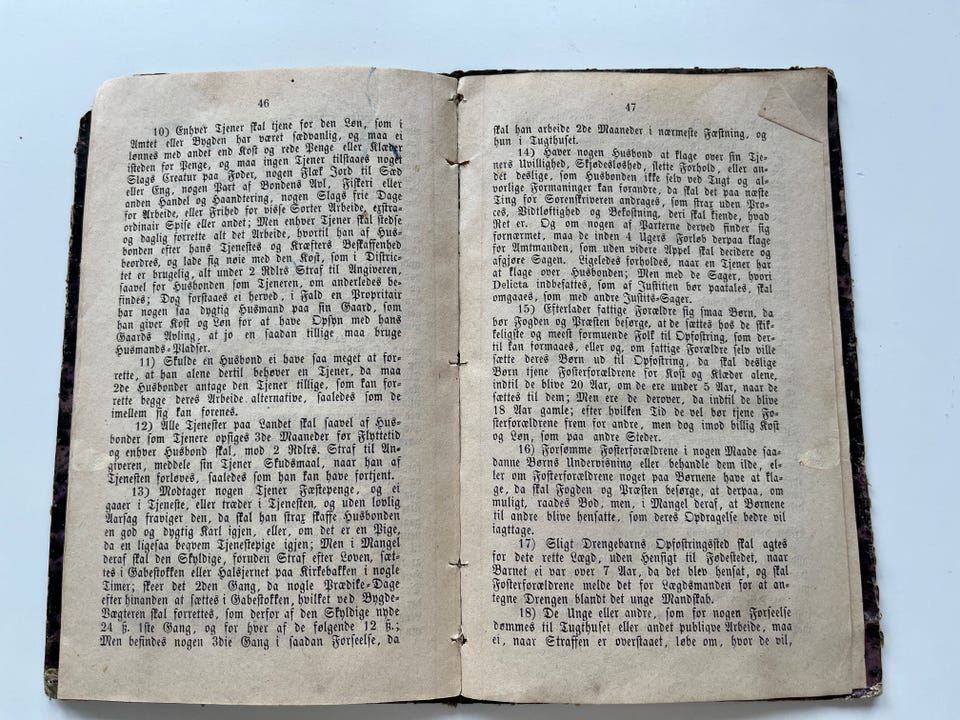 46
10) Enhver Tjener skal tjene for den Løn, som i
Amtet eller Bygden har været sædvanlig, og maa ei
lønnes med andet end Kost og rede Penge eller Klæder
isteden for Penge, og maa ingen Tjener tilstaaes noget
Slags Creatur paa Foder, nogen Flæk Jord til Sæd
eller Eng, nogen Part af Bondens Avl, Fiskeri eller
anden Handel og Haandtering, nogen Slags frie Dage
for Arbeide, eller Frihed for visse Sorter Arbeide, extra-
ordinair Spise eller andet; Men enhver Tjener skal stedse
og daglig forrette alt det Arbeide, hvortil han af Hus-
bonden efter hans Tjenestes og Kræfters Beskaffenhed
beordres, og lade sig nøie med den Kost, som i Distric-
tet er brugelig, alt under 2 Rdlrs Straf til Angiveren,
saavel for Husbonden som Tjeneren, om anderledes be-
findes; Dog forstaaes ei herved, i Fald en Propritair
har nogen saa dygtig Husmand paa sin Gaard, som
han giver Kost og Løn for at have Opsyn med hans
Gaards Avling, at jo en saadan tillige maa bruge
Husmands-Pladser.
11) Skulde en Husbond ei have saa meget at for-
rette, at han alene dertil behøver en Tjener, da maa
2de Husbonder antage den Tjener tillige, som kan for-
rette begge deres Arbeide alternative, saaledes som de
imellem sig kan forenes.
12) Alle Tjenester paa Landet skal saavel af Hus-
bonder som Tjenere opsiges 3de Maaneder før Flyttetid
og enhver Husbond skal, mod 2 Rdlrs. Straf til An-
giveren, meddele sin Tjener Skudsmaal, naar han af
Tjenesten forløves, saaledes som han kan have fortjent.
13) Modtager nogen Tjener Fæstepenge, og ei
gaaer i Tjeneste, eller træder i Tjenesten, og uden lovlig
Aarsag fraviger den, da skal han strax skaffe Husbonden
en god og dygtig Karl igjen, eller, om det er en Pige,
da en ligesaa beqvem Tjenestepige igjen; Men i Mangel
deraf skal den Skyldige, foruden Straf efter Loven, sæt-
tes i Gabestokken eller Halsjernet paa Kirkebakken i nogle
Timer; skeer det 2den Gang, da nogle Prædike-Dage
efterhinanden at sættes i Gabestokken, hvilket ved Bygde-
Vægteren skal forrettes, som derfor af den Skyldige nyde
24 ß. 1ste Gang, og for hver af de følgende 12 ß.;
Men befindes nogen 3die Gang i saadan Forseelse, da
47
skal han arbeide 2de Maaneder i nærmeste Fæstning, og
hun i Tugthuset.
14) Haver nogen Husbond at klage over sin Tje-
ners Uvillighed, Skjødesløshed, slette Forhold, eller an-
det deslige, som Husbonden ikke selv ved Tugt og al-
vorlige Formaninger kan forandre, da skal det paa næste
Ting for Sorenskriveren andrages, som strax uden Pro-
ces, Vidtløftighed og Bekostning, deri skal kiende, hvad
Ret er. Og om nogen af Parterne derved finder sig
fornærmet, maa de inden 4 Ugers Forløb derpaa klage
for Amtmanden, som uden videre Appel skal decidere og
afgjøre Sagen. Ligeledes forholdes, naar en Tjener har
at klage over Husbonden; Men med de Sager, hvori
Delicta indbefattes, som af Justitien bør paatales, skal
omgaaes, som med andre Justits-Sager.
15) Efterlader fattige Forældre sig smaa Børn, da
bør Fogden og Præsten besørge, at de sættes hos de skik-
keligste og meest formuende Folk til Opfostring, som der-
til kan formaaes, eller og, om fattige Forældre selv ville
sætte deres Børn ud til Opfostring, da skal deslige
Børn tjene Fosterforældrene for Kost og Klæder alene,
indtil de blive 20 Aar, om de ere under 5 Aar, naar de
sættes til dem; Men ere de derover, da indtil de blive
18 Aar gamle; efter hvilken Tid de vel bør tjene Fo-
sterforældrene frem for andre, men dog imod billig Kost
og Løn, som paa andre Steder.
16) Forsømme Fosterforældrene i nogen Maade saa-
danne Børns Underviisning eller behandle dem ilde, el-
ler om Fosterforældrene noget paa Børnene have at kla-
ge, da skal Fogden og Præsten besørge, at derpaa, om
muligt, raades Bod, men, i Mangel deraf, at Børnene
til andre blive hensatte, som deres Opdragelse bedre vil
iagttage.
17) Sligt Drengebarns Opfostringssted skal agtes
for dets rette Lægd, uden Hensigt til Fødestedet, naar
Barnet ei var over 7 Aar, da det blev hensat, og skal
Fosterforældrene melde det for Lægdsmanden for at an-
tegne Drengen blandt det unge Mandskab.
18) De Unge eller andre, som for nogen Forseelse
dømmes til Tugthuset eller andet publique Arbeide, maa
ei, naar Straffen er overstaaet, løbe om, hvor de vil,